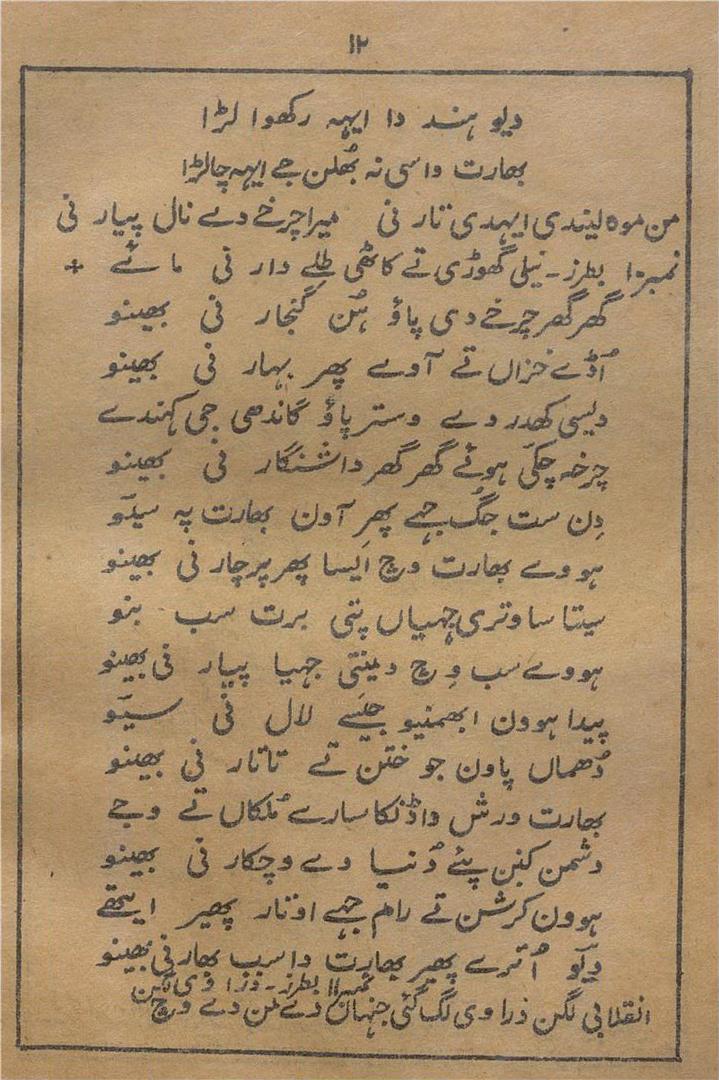 ۱۲
دیو ہند دا ایہہ رکھوا لڑا
بھارت واسی نہ بُھلن جے ایہہ چالڑا
من موہ لیندی ایہدی تار نی میرا چرخے دے نال پیار نی
نمبر۱۰ بطرز۔ نیلی گھوڑی تے کاٹھی طلے دار نی مائے +
گھر گھر چرخے دی پاؤ ہُن گنجار نی بھینو
اُڈے خزاں تے آوے پھر بہار نی بھینو
دیسی کھدر دے وستر پاؤ گاندھی جی کہندے
چرخہ چکی ہوئے گھر گھر دا شنگار نی بھینو
دِن ست جُگ جہے پھر آون بھارت پہ سیئو
ہووے بھارت وچ ایسا پھر پرچار نی بھینو
سیتا ساوتری جہیاں پتی برت سب بنو
ہووے سب وِچ دمینتی جہیا پیار نی بھینو
پیدا ہوون ابھمنیو جیسے لال نی سیئو
دُھماں پاون جو ختن تے تاتار نی بھینو
بھارت ورش دا ڈنکا سارے مُلکاں تے وجے
دشمن کنبن پئے دُنیا دے وچکار نی بھینو
ہوون کرشن تے رام جہے اوتار پھیر ایتھے
دیو اُترے پھر بھارت دا سب بھار نی بھینو
نمبر۱۱ بطرز۔ وزا وی لگن
انقلابی لگن ذرا وی لگ گئی جنہاں دے من دے وچ